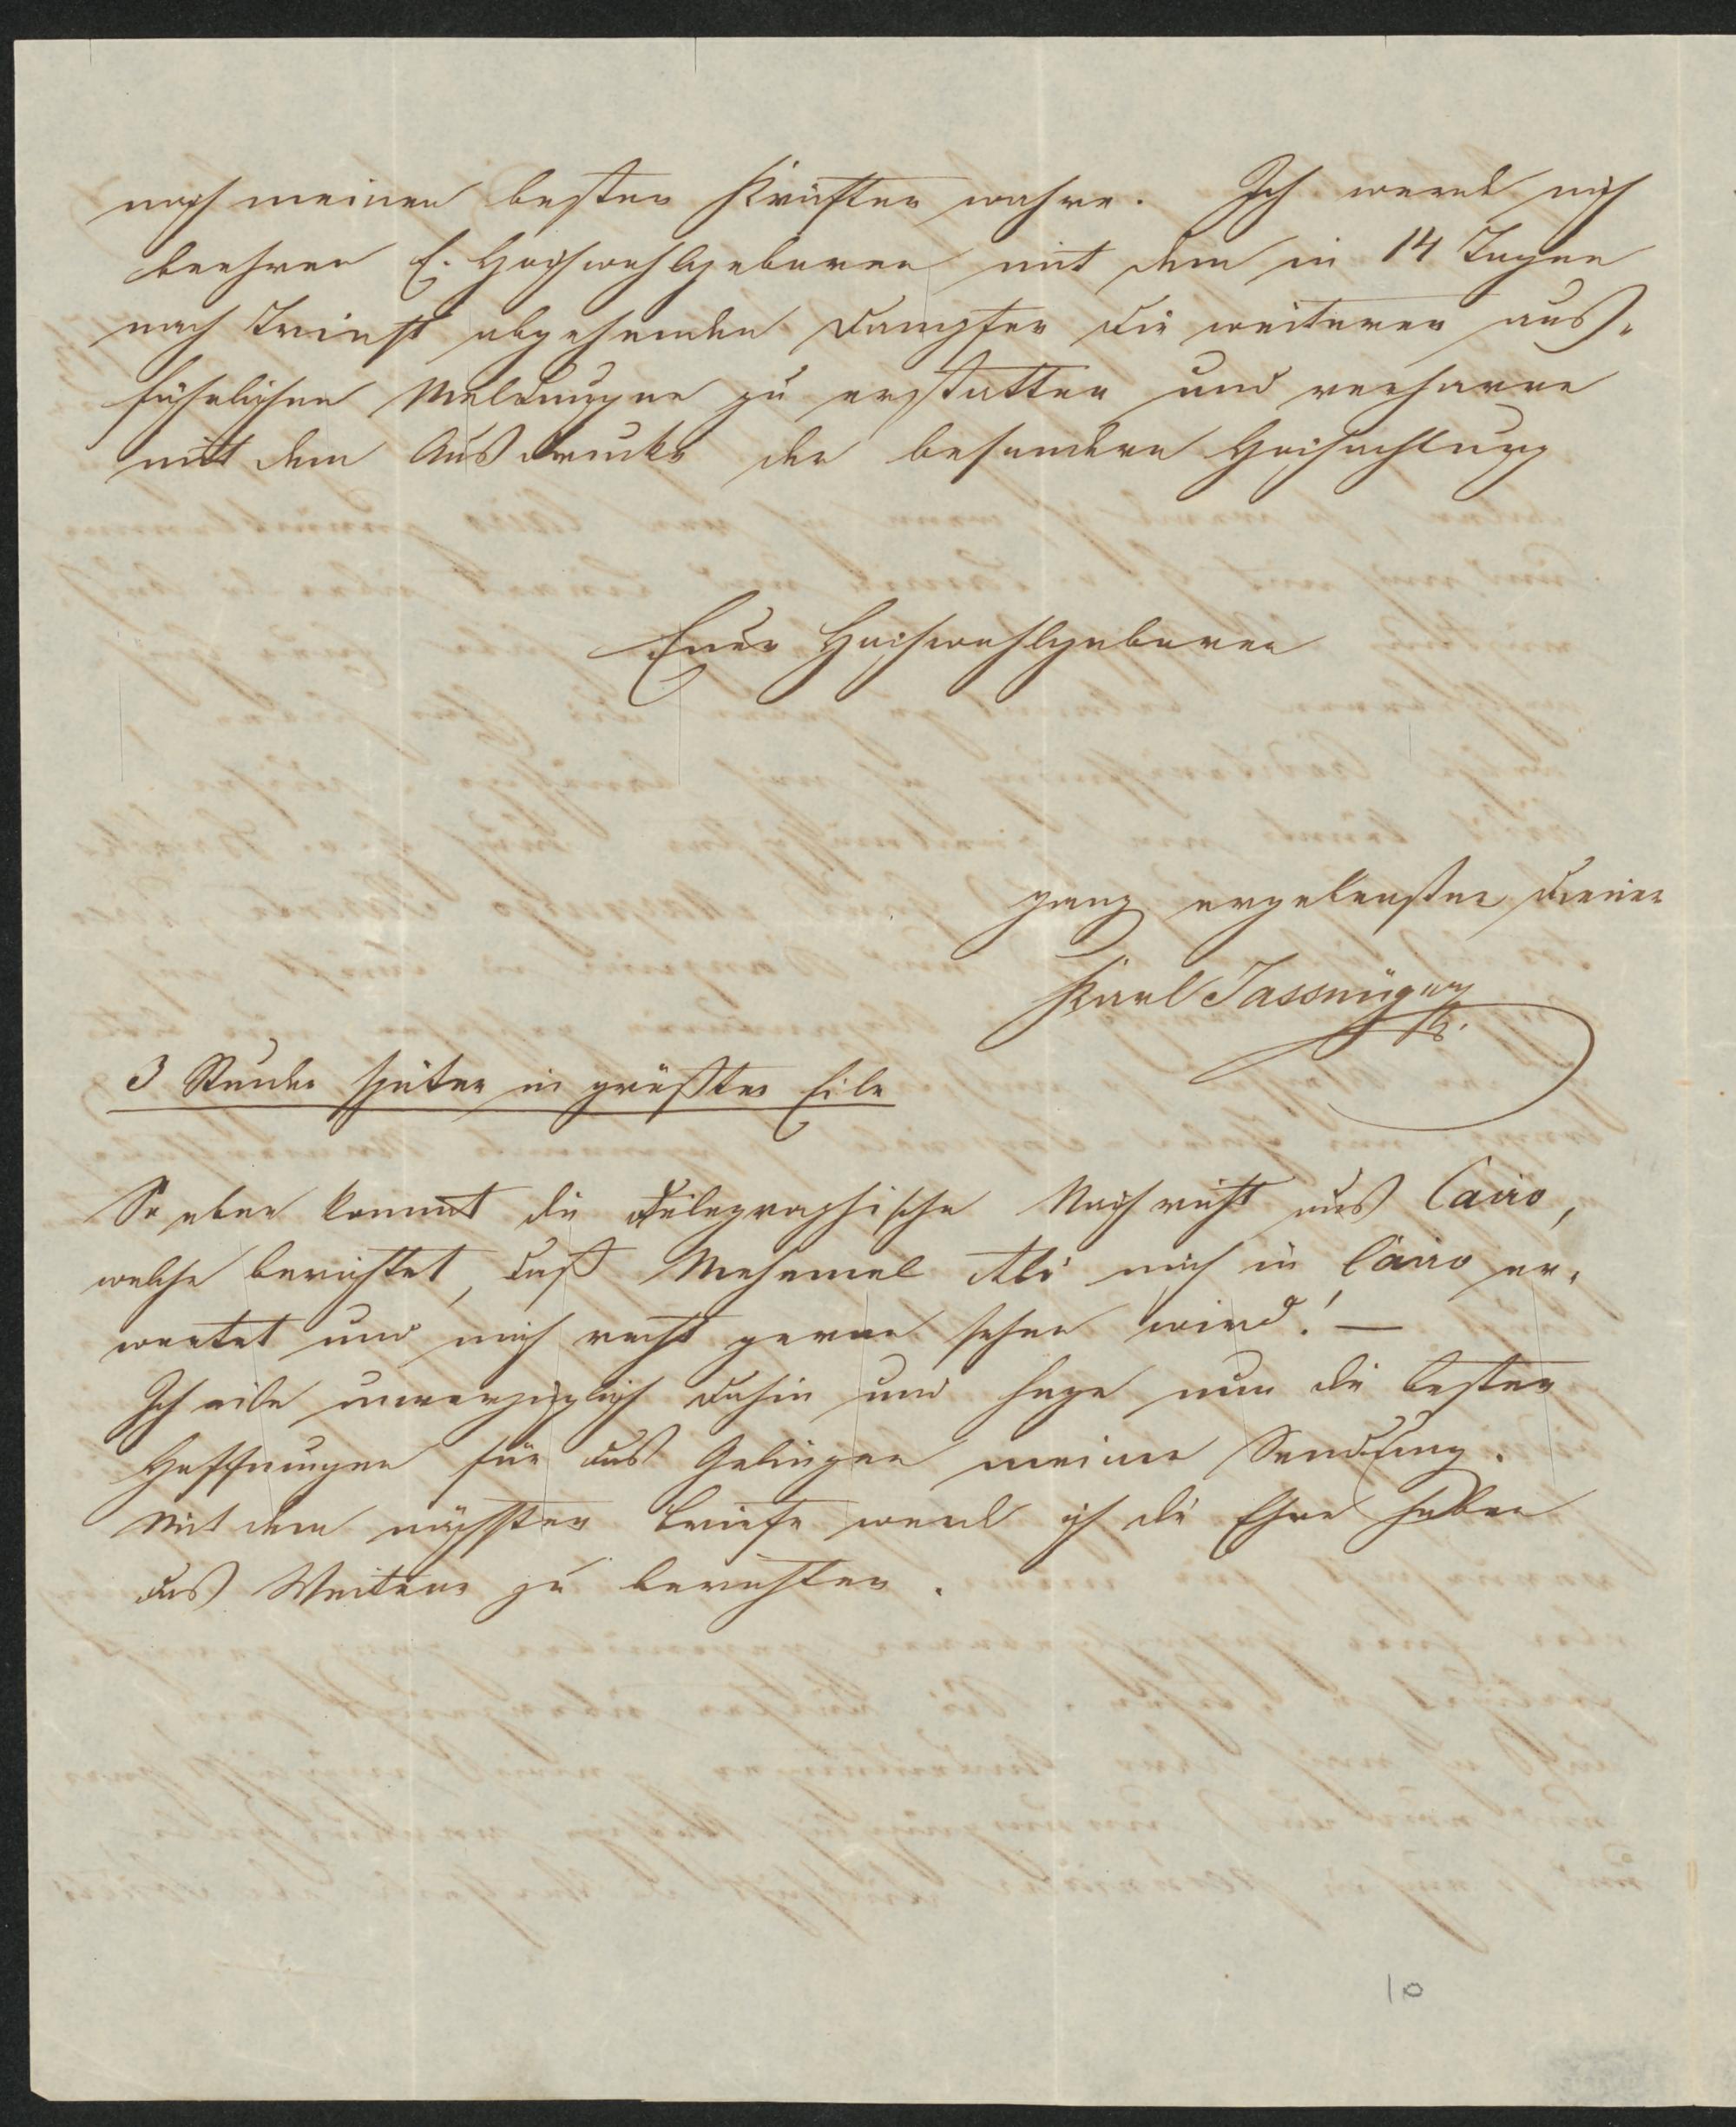 nach meinen besten Kräften wahre. Ich werde mich
beehren E. Hochwohlgeboren mit dem in 14 Tagen
nach Triest abgehenden Dampfer die weiteren aus-
führlichen Meldungen zu erstatten und verharre
mit dem Ausdrucke der besondern Hochachtung
Euer Hochwohlgeboren
ganz ergebenster Diener
Karl Jassnüger
3 Stunden später in größter Eile
So eben kommt die telegraphische Nachricht aus Cairo,
welche berichtet, daß Mehemed Ali mich in Cairo er-
wartet und mich recht gerne sehen wird! —
Ich eile unverzüglich dahin und hege nun die besten
Hoffnungen für das Gelingen meiner Sendung.
Mit dem nächsten Briefe werde ich die Ehre haben
das Weitere zu berichten.
10